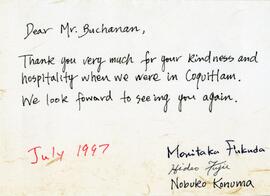 Dear Mr. Buchanan,
Thank you very much for your kindness and
hospitality when we were in Coquitlam.
We look forward to seeing you again.
July 1997
Monitaka Fukuda
Hideo Fujii
Nobuko Konuma